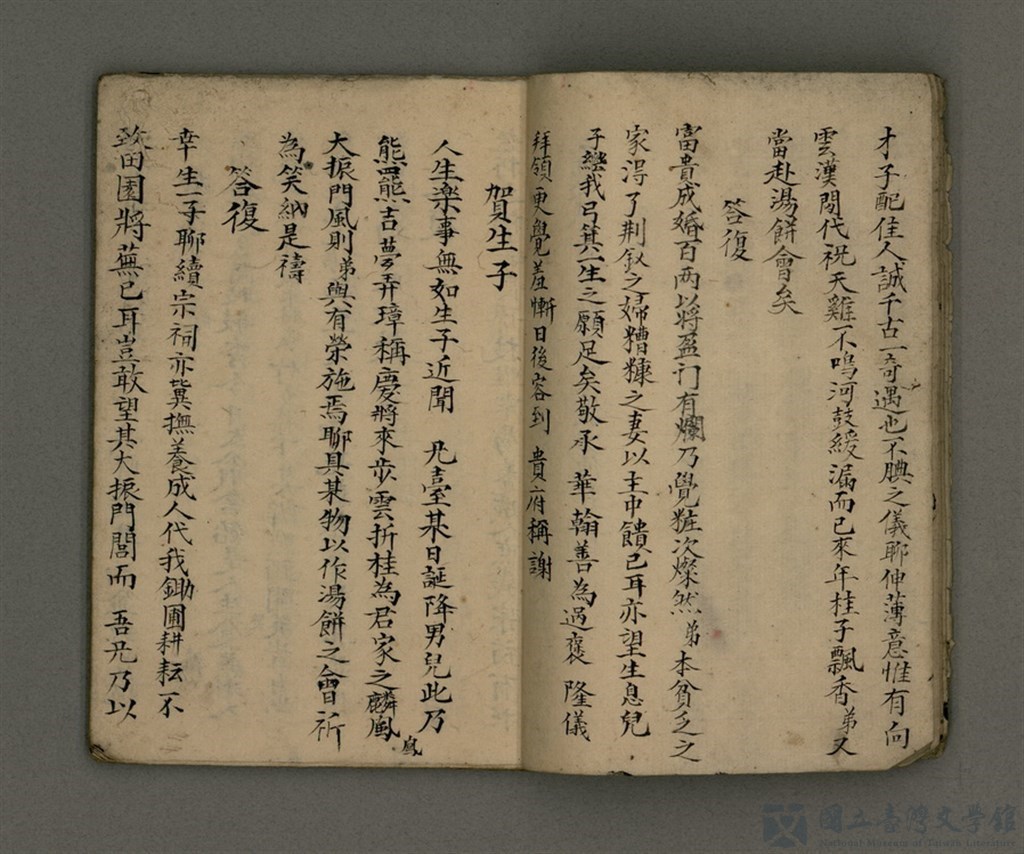 才子配佳人誠千古一奇遇也不腆之儀聊伸薄意惟有向
雲漢間代祝天雞不鳴河鼓緩漏而已來年桂子飄香弟又
當赴湯餅會矣
答復
富貴成婚百両以將盈门有爛乃覺粧次燦然弟本貧乏之
家淂了荆釵之婦糟糠之妻以主中饋已耳亦望生息兒
子継我弓箕一生之願足矣敬承 華翰善為過褒 隆儀
拜領更覺羞慚日後容到 貴府稱謝
賀生子
人生楽事無如生子近聞 兄臺某日誕降男兒此乃
熊羆吉夢弄璋稱慶將來步雲折桂為君家之麟鳳
大振門風則弟與有榮施焉聊具某物以作湯餅之會祈
為笑納是禱
答復
幸生一子聊續宗祠亦冀撫養成人代我鋤圃耕耘不
致田園將蕪已耳豈敢望其大振門閭而 吾兄乃以
國立臺灣文學館
National Museum of Taiwan Literature